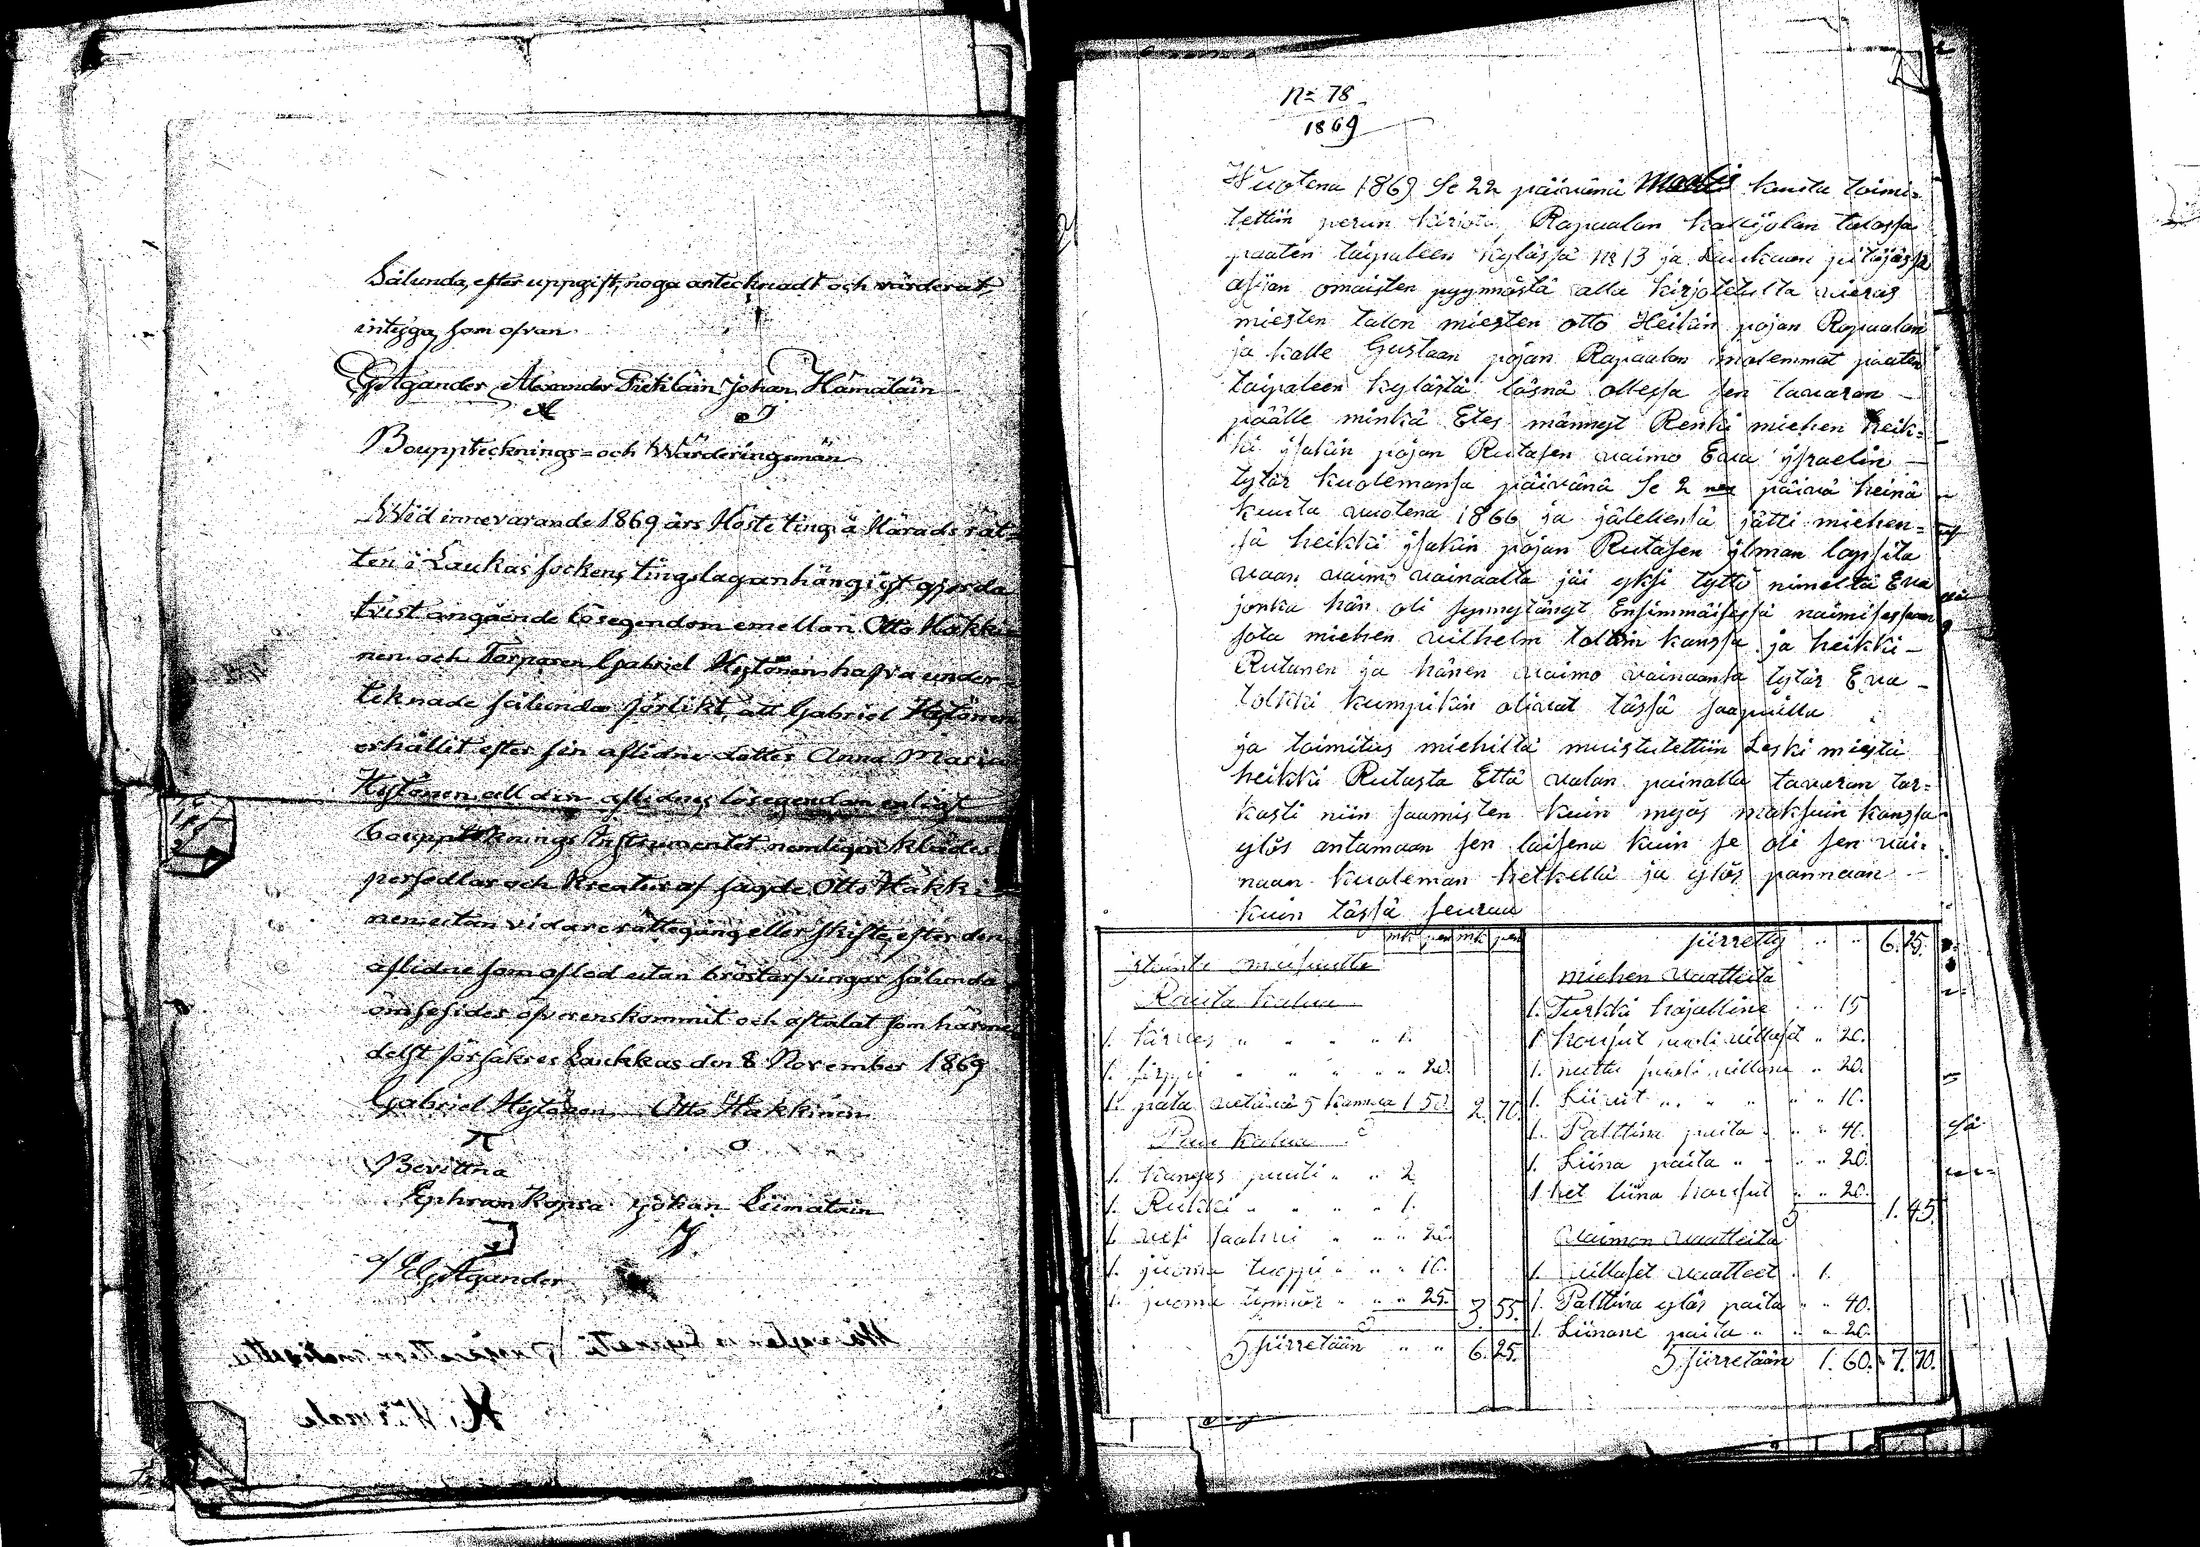 Sålunda, efter uppgift, noga antecknadt och värderat,
intyga som ofvan
GAgander Alexander Pieliläin Johan Hämäläin
A J
Bouppteknings= och Wärderingsmän
Wid innevarande 1869 års Höste ting å Härads rät=
ten i Laukas sockens tingslag anhängigt gjorda
tvist angående lösegendom emellan Otto Häkki=
nen och Torparen Gabriel Hytönen hafva under=
teknade sålunda förlikt, att Gabriel Hytönen
erhållit efter sin aflidne dotter Anna Maria
Hytönen all den aflidnes lösegendom enligt
bouppteknings Instrumentet nemligen kläder
persedlar och kreatur af sagde Otto Häkki=
nen utan vidare rättegång eller skifte, efter den
aflidne som afled utan bröstarfvingar sålunda
ömsesides öfverenskommit och aftalat som härme=
delst försäkres Laukkas den 8 November 1869
Gabriel Hytönen Otto Häkkinen
Bevittna
Ephram Kopsa Johan Liimatain
af GAgander
No 78
1869
Wuotena 1869 se 22 päivänä kuuta toimi=
tettiin perun kirjotus Rapaalan talossa
paaten taipaleen kylässä No 13 ja Laukaan pitäjässä
asian omaisten pyynnöstä alla kirjotetulta vieras
miesten talon miesten Otto Heikin pojan Rapaalan
ja Kalle Gustaan pojan Rapaalan molemmat paaten
taipaleen kylästä läsnä ollessa sen tavaran
päälle minkä Edes männyt Renki miehen heik=
ki ysakin pojan Rutasen vaimo Eva ysraelin
tytär kuolemansa päivänä se 2 päivä heinä
kuuta vuotena 1866 ja jälehensä jätti miehen=
sä heikki ysakin pojan Rutasen ilman lapsita
vaan vaimo vainaalta jäi yksi tyttö nimeltä Eva
jonka hän oli synnytänyt Ensimmäisessä naimisessaan
sota miehen vilhelm toltin kanssa ja heikki
Rutanen ja hänen vaimo vainaansa tytär Eva
tolkki kumpikin olivat tässä saapuilla
ja toimitus miehiltä muistutettiin Leski miestä
heikki Rutasta Että valan painolla tavaran tar=
kasti niin saamisten kuin myös maksuin kanssa
ylös antamaan sen laisena kuin se oli sen vai=
naan kuoleman hetkellä ja ylös pannaan
kuin tässä seuraa
mk pen mk pen
Rauta kalua
1. kirves " " " " 1.
1. " " " " 20.
1. pata vetävä 5 kannua 1 50. 2. 70.
Puu kalua
1. kangas puuti " " 2.
1. Rukki " " " " 1.
1. vesi saavi " " " 20.
1. juoma tuoppi " " " 10.
1. juoma tynnör " " " 25. 3. 55.
Siirretään " " 6. 25.
siirretty " " 6. 25.
miehen vaatteita
1. Turkki hajalline " " 15
1 housut puoli villaset " 20.
1. nuttu puoli villane " 20.
1. Liivit " " " " " 10.
1. Palttina paita " " " 40.
1. Liina paita " " " 20.
1 het liina housut " " 20. 1. 45.
Vaimon vaatteita
1. villaset vaatteet " 1.
1. Palttina ylös paita " " 40.
1. Liinane paita " " " 20.
Siirretään 1. 60. 7. 70.